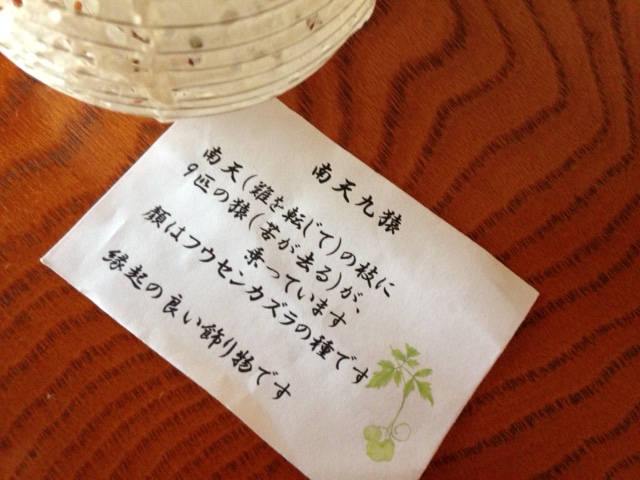 南天九猿
南天(難を転じて)の枝に
9匹の猿(苦が去る)が、
乗っています
顔はフウセンカズラの種です
縁起の良い飾り物です